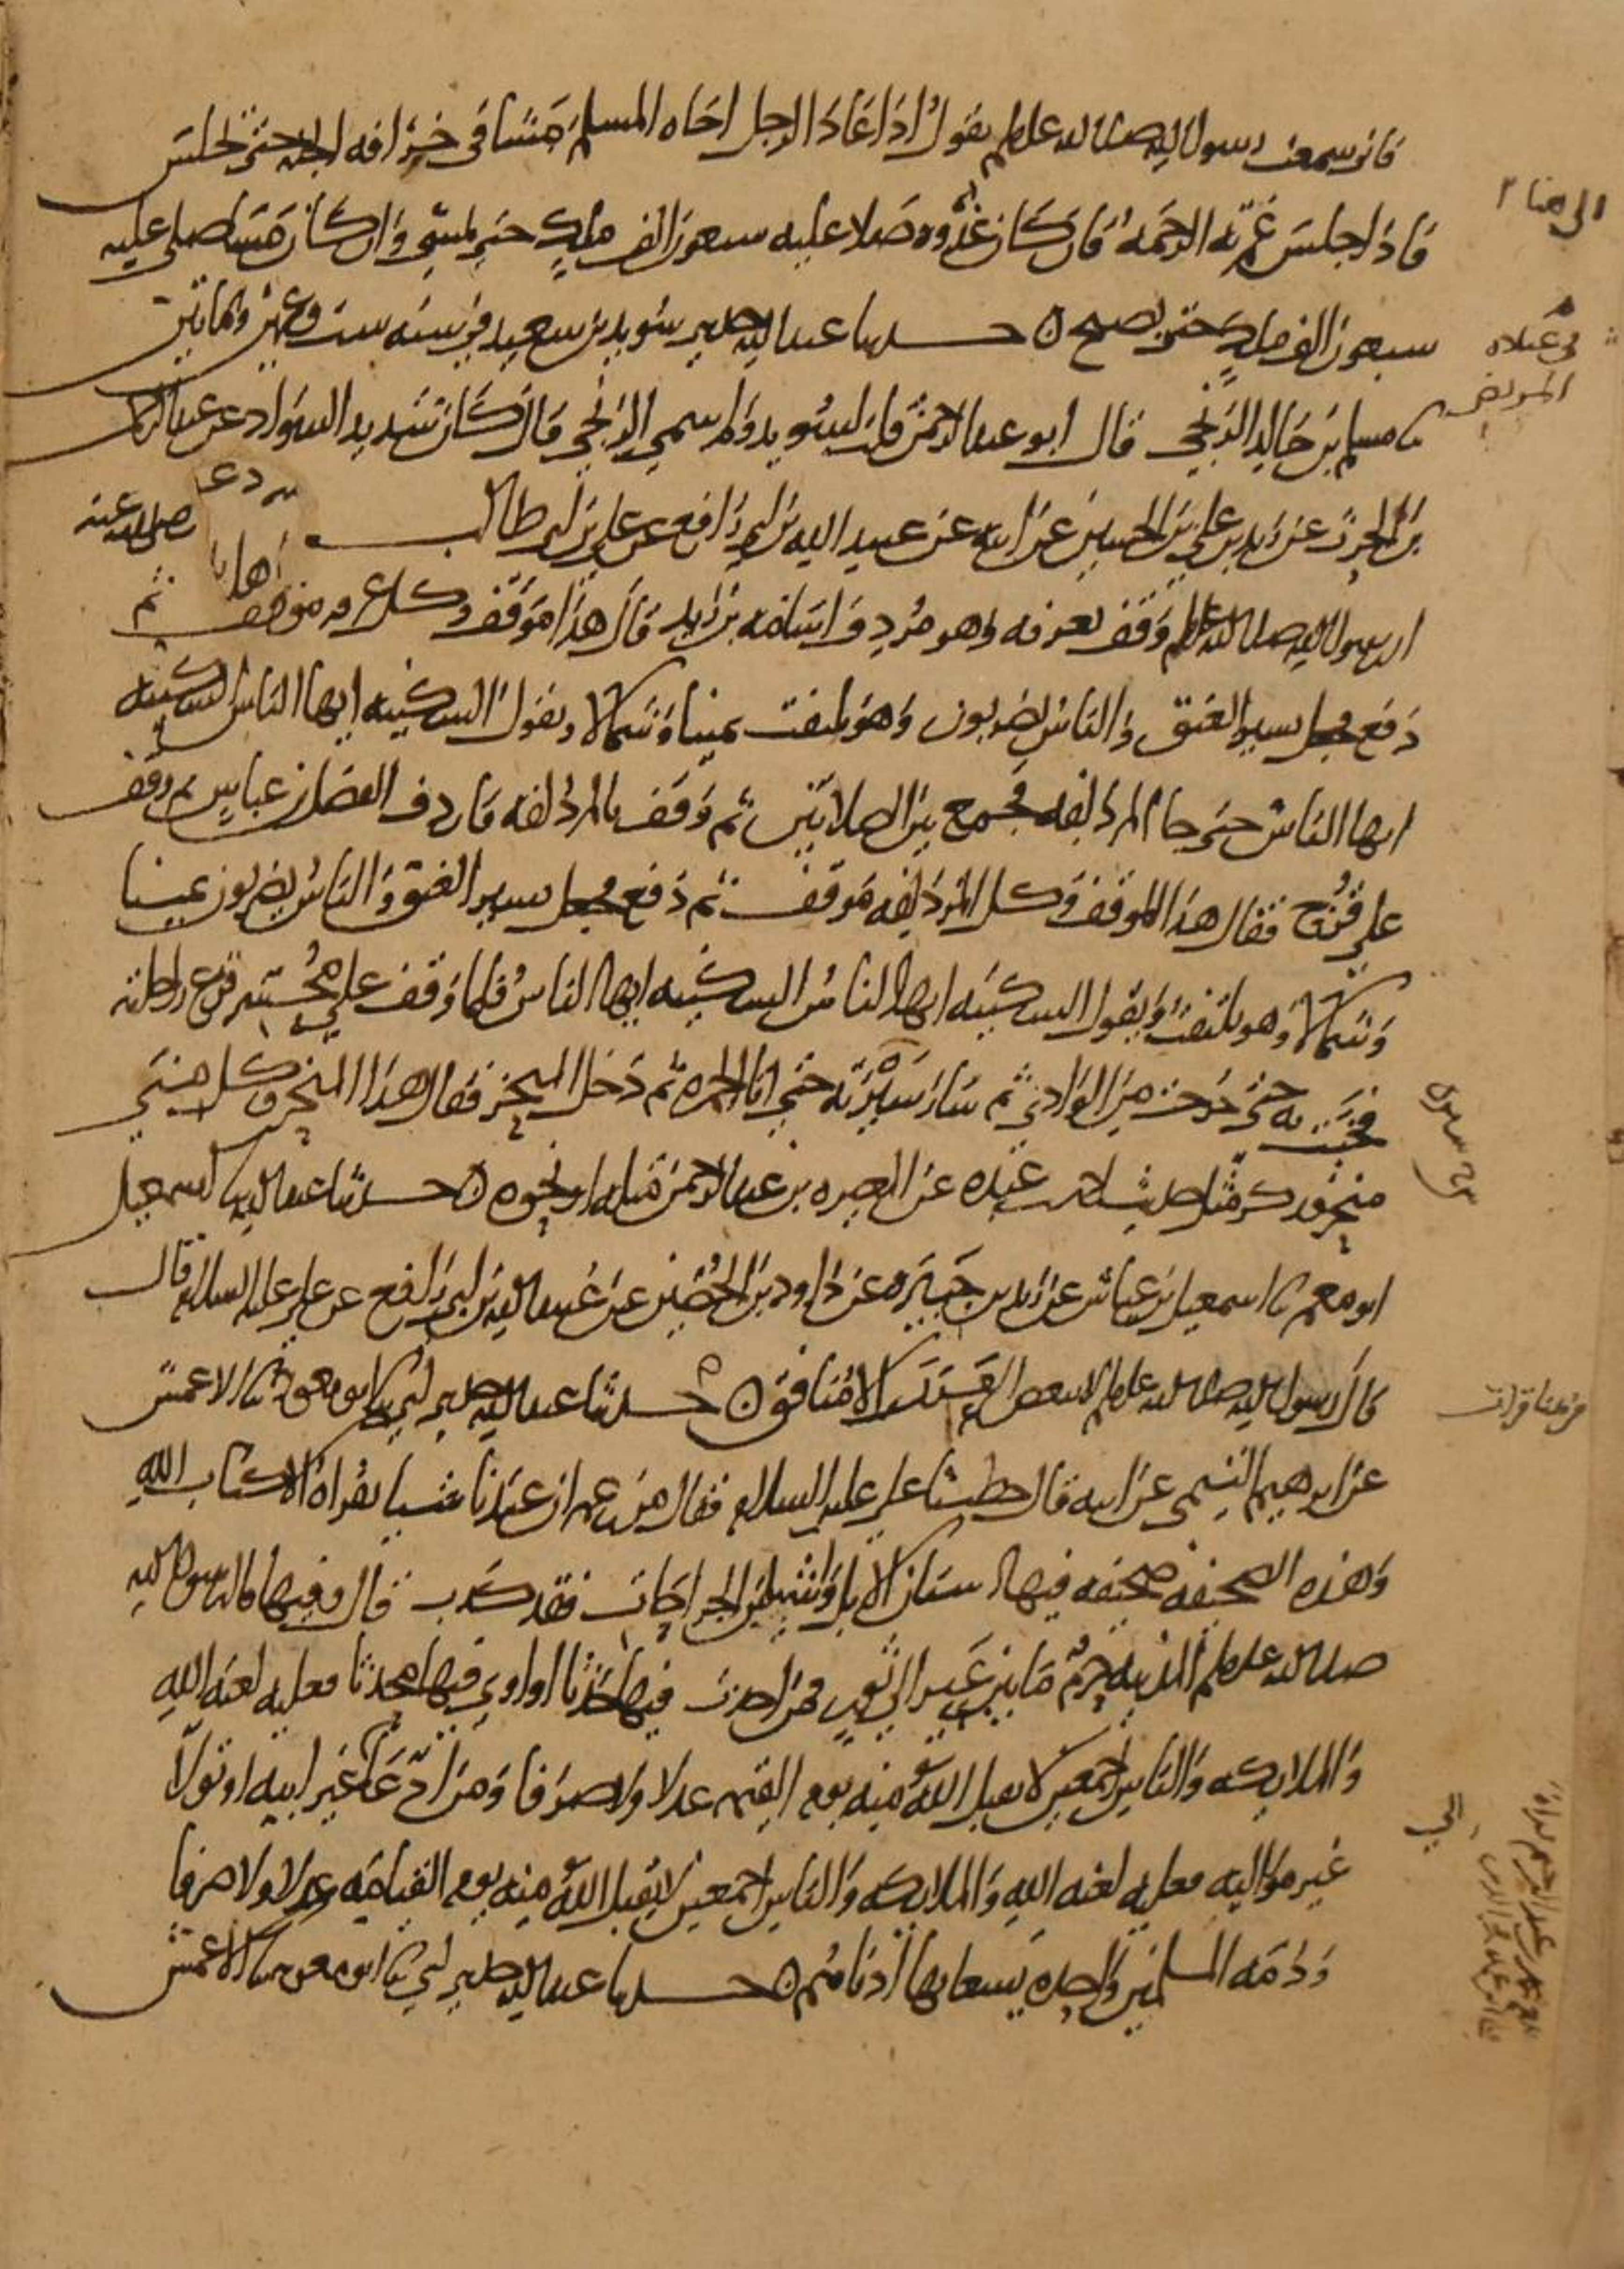 فاني سمعت رسول الله صلى الله عليه وسلم يقول اذا عاد الرجل اخاه المسلم مشا في خرافه الجنه حتى يجلس
فاذا جلس غمرته الرحمه فان كان غدوه صلا عليه سبعون الف ملك حتى يمسي وان كان مسا صلى عليه
سبعون الف ملك حتى يصبح حدثنا عبد الله حدثني سويد بن سعيد في سنه ست وعشرين ومايتين
نا مسلم بن خالد الزنجي قال ابو عبد الرحمن قلت لسويد ولم سمي الزنجي قال كان شديد السواد عن عبد الرحمن
بن الحرث عن زيد بن علي بن الحسين عن ابيه عن عبيد الله بن ابي رافع عن علي بن ابي طالب
ان رسول الله صلى الله عليه وسلم وقف بعرفه وهو مردف اسامه بن زيد فقال هذا موقف وكل عرفه موقف ثم
دفع فجعل يسير العنق والناس يضربون وهو يلتفت يمينا وشمالا ويقول السكينه ايها الناس السكينه
ايها الناس حتى جا المزدلفه فجمع بين الصلاتين ثم وقف بالمزدلفه فاردف الفضل بن عباس ثم وقف
على قزح فقال هذا الموقف وكل المزدلفه موقف ثم دفع فجعل يسير العنق والناس يضربون يمينا
وشمالا وهو يلتفت ويقول السكينه ايها الناس السكينه ايها الناس فلما وقف على محسر قرع راحلته
فخبت به حتى خرجت من الوادي ثم سار سيرته حتى اتا الجمره ثم دخل المنحر فقال هذا المنحر وكل منى
منحر فذكر مثل حديث احمد بن عبده عن المغيره بن عبد الرحمن مثله او نحوه حدثنا عبد الله نا اسمعيل
ابو معمر نا اسمعيل بن عياش عن زيد بن جبيره عن داود بن الحصين عن عبيد الله بن ابي رافع عن علي عليه السلام قال
قال رسول الله صلى الله عليه وسلم لا يبغض العرب الا منافق حدثنا عبد الله حدثني ابي نا ابو معويه نا الاعمش
عن ابرهيم التيمي عن ابيه قال خطبنا علي عليه السلام فقال من زعم ان عندنا شيا نقراه الا كتاب الله
وهذه الصحيفه صحيفه فيها اسنان الابل واشيا من الجراحات فقد كذب قال وفيها قال رسول الله
صلى الله عليه وسلم المدينه حرم ما بين عير الى ثور فمن احدث فيها حدثا او اوى فيها محدثا فعليه لعنه الله
والملايكه والناس اجمعين لا يقبل الله منه يوم القيمه عدلا ولا صرفا ومن ادعا الى غير ابيه او تولا
غير مواليه فعليه لعنه الله والملايكه والناس اجمعين لا يقبل الله منه يوم القيامه عدلا ولا صرفا
وذمه المسلمين واحده يسعا بها ادناهم حدثنا عبد الله حدثني ابي نا ابو معويه نا الاعمش
الى هنا
المريض
رضي الله عنه
من هنا قرات
الي